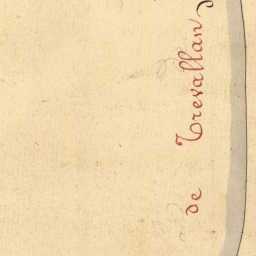 de Trevallan